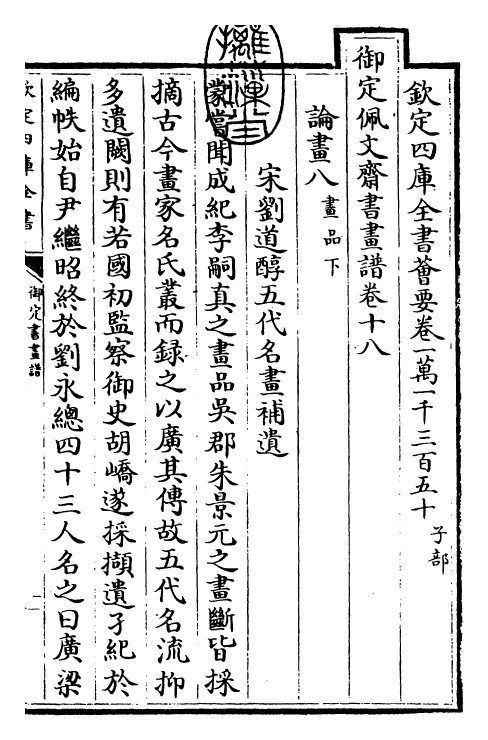 欽定四庫全書薈要卷一萬一千三百五十 子部
御定佩文齋書畫譜卷十八
論畫八 畫品下
宋劉道醇五代名畫補遺
蒙嘗聞成紀李嗣真之畫品吳郡朱景元之畫斷皆採
摘古今畫家名氏叢而録之以廣其傳故五代名流抑
多遺闕則有若國初監察御史胡嶠遂採擷遺孑紀於
編帙始自尹繼昭終於劉永總四十三人名之曰廣梁
欽定四庫全書
御定書畫譜
一